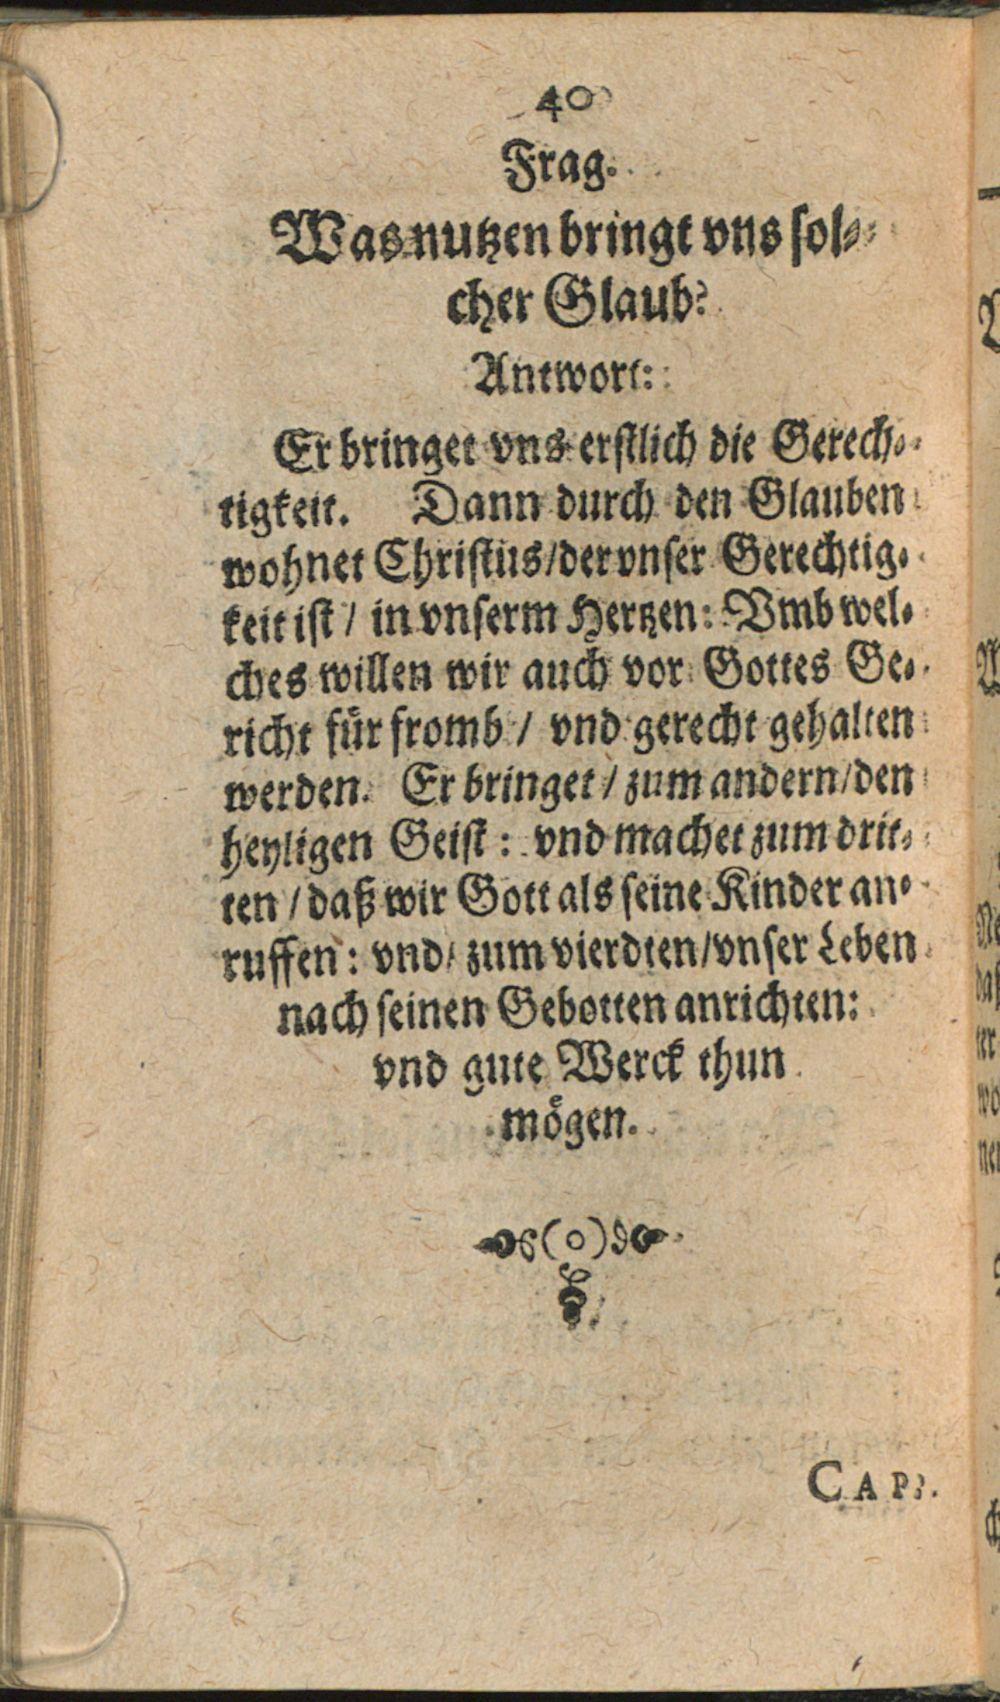 40
Frag.
Was nutzen bringt vns sol-
cher Glaub?
Antwort:
Er bringet vns erstlich die Gerech-
tigkeit. Dann durch den Glauben
wohnet Christus/der vnser Gerechtig-
keit ist / in vnserm Hertzen: Vmb wel-
ches willen wir auch vor Gottes Ge-
richt für fromb / vnd gerecht gehalten
werden. Er bringet / zum andern/den
heyligen Geist: vnd machet zum drit-
ten / daß wir Gott als seine Kinder an-
ruffen: vnd/ zum vierdten/vnser Leben
nach seinen Gebotten anrichten:
vnd gute Werck thun
mögen.
CAP.